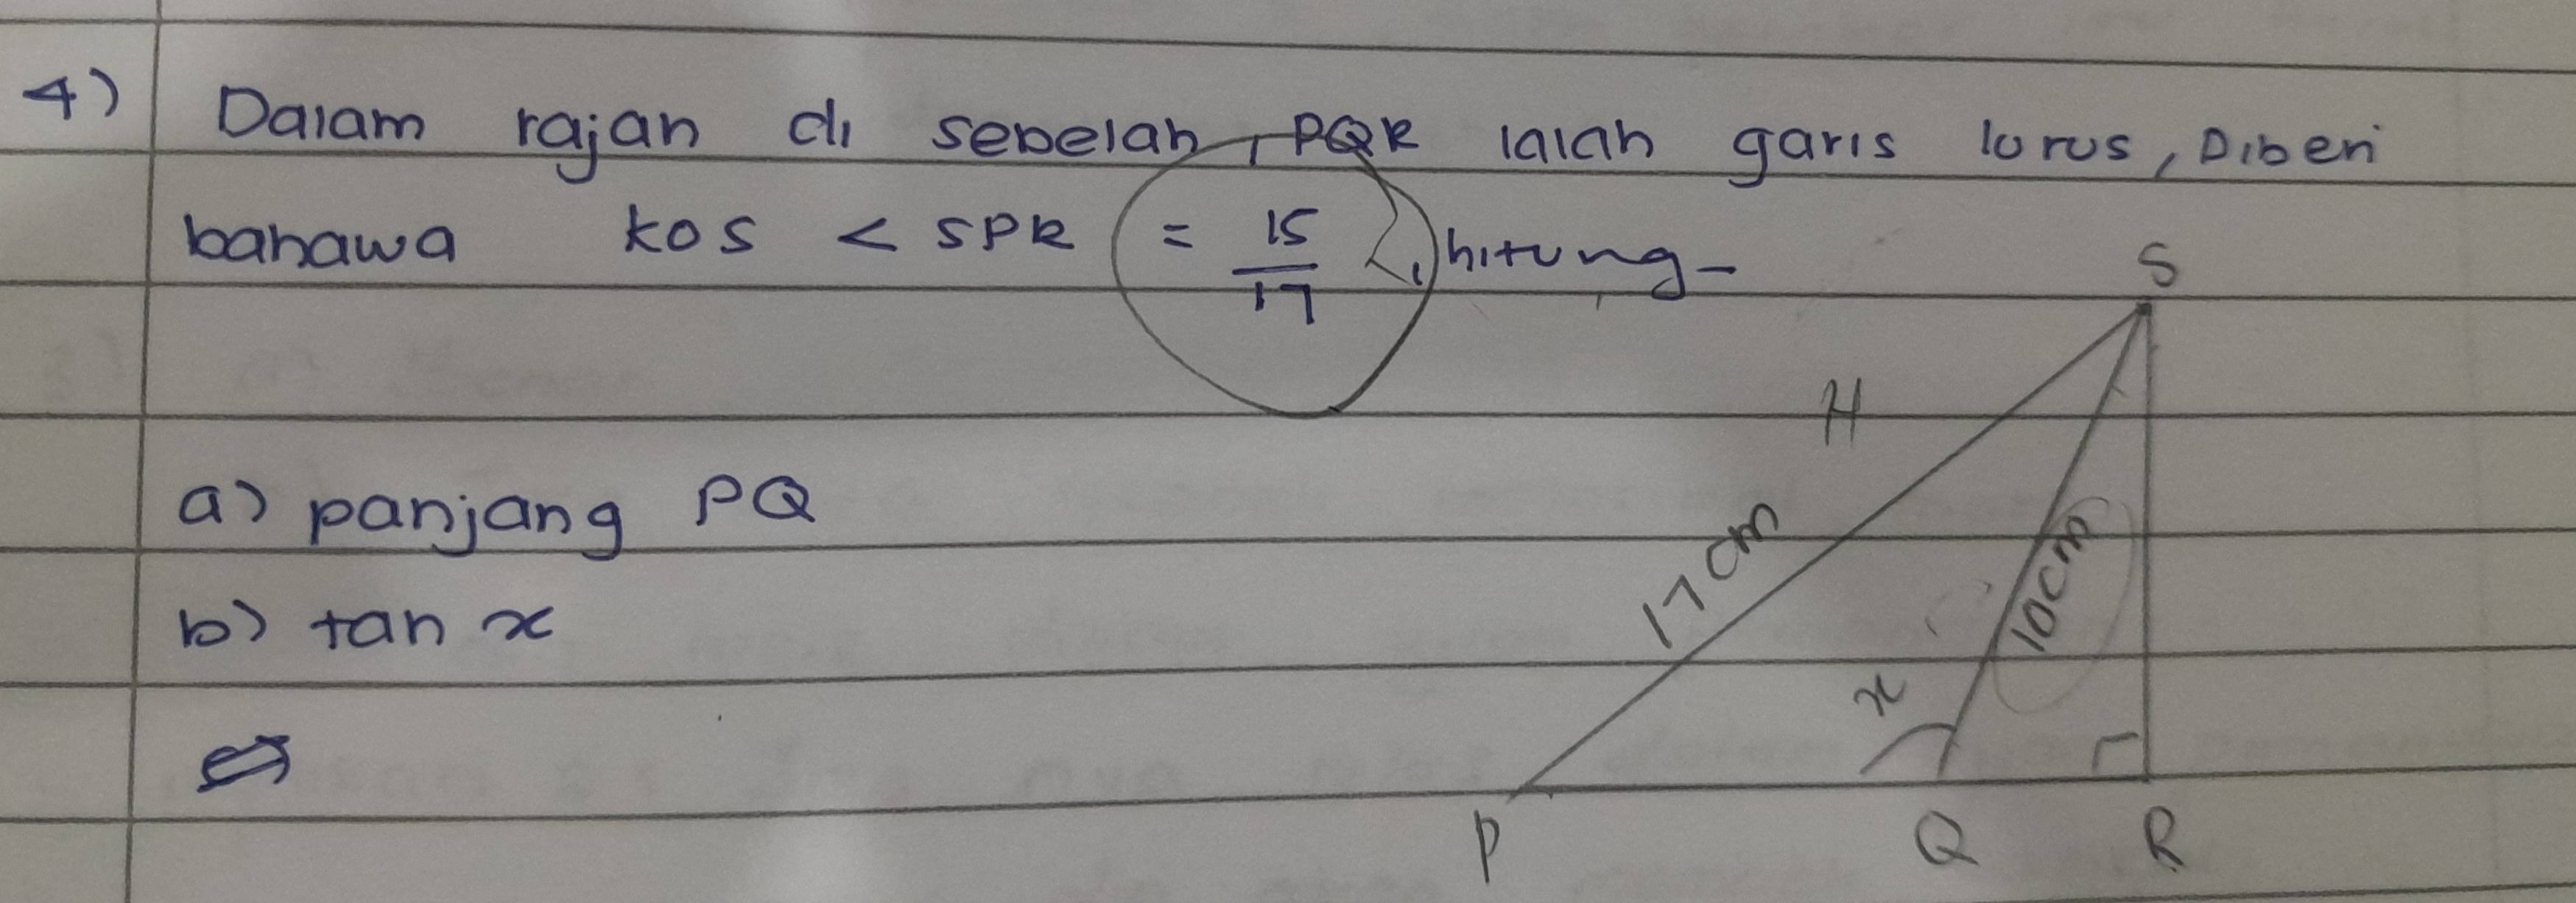 4) Dalam rajah di sebelah, PQR ialah garis lurus, Diberi
bahawa kos < SPR = 15/17, hitung-
S
H
a) panjang PQ
17 cm
10cm
b) tan x
x
P Q R